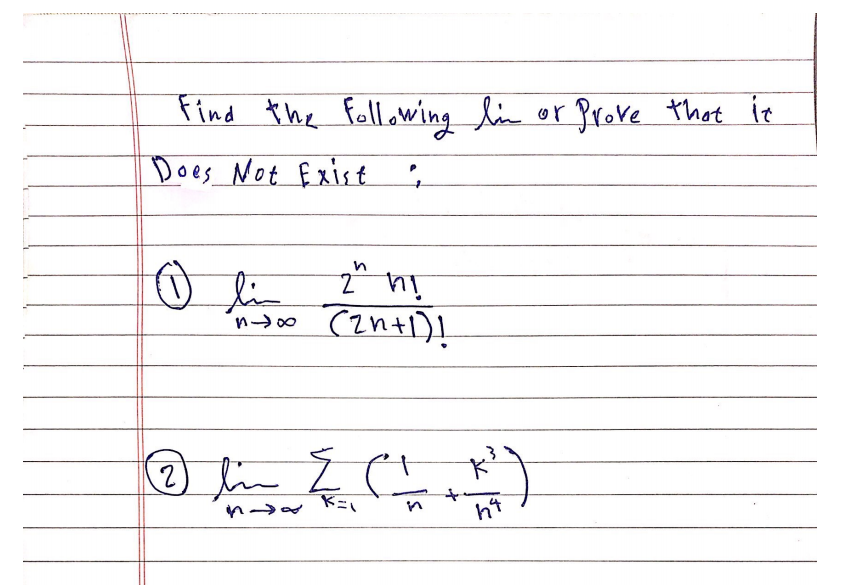 Find the Following lim or Prove that it
Does Not Exist :
① lim n→∞ 2ⁿ n! / (2n+1)!
② lim n→∞ Σ k=1 (1/n + k³/n⁴)